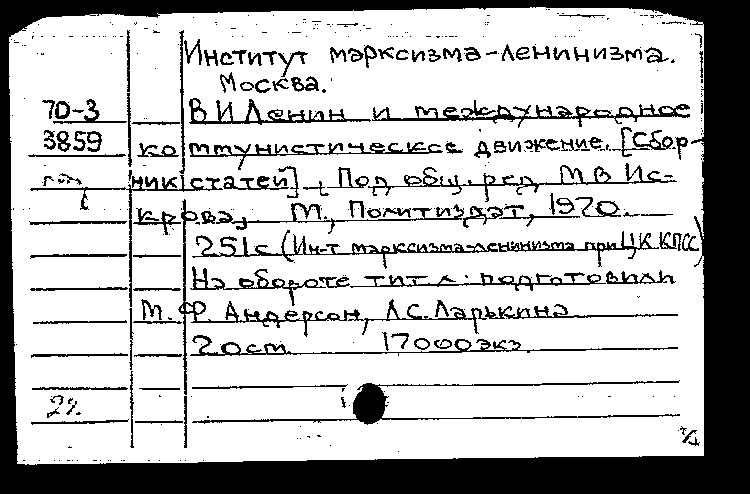 Институт марксизма-ленинизма.
Москва.
70-3 В И Ленин и международное
3859 коммунистическое движение. [Сбор-
ник статей]. Под общ. ред. М В Ис-
крова, М., Политиздат, 1970.
251с (Ин-т марксизма-ленинизма при ЦК КПСС)
На обороте тит. л: подготовили
М. Ф. Андерсон, Л.С. Ларькина
20 ст. 17000 экз.